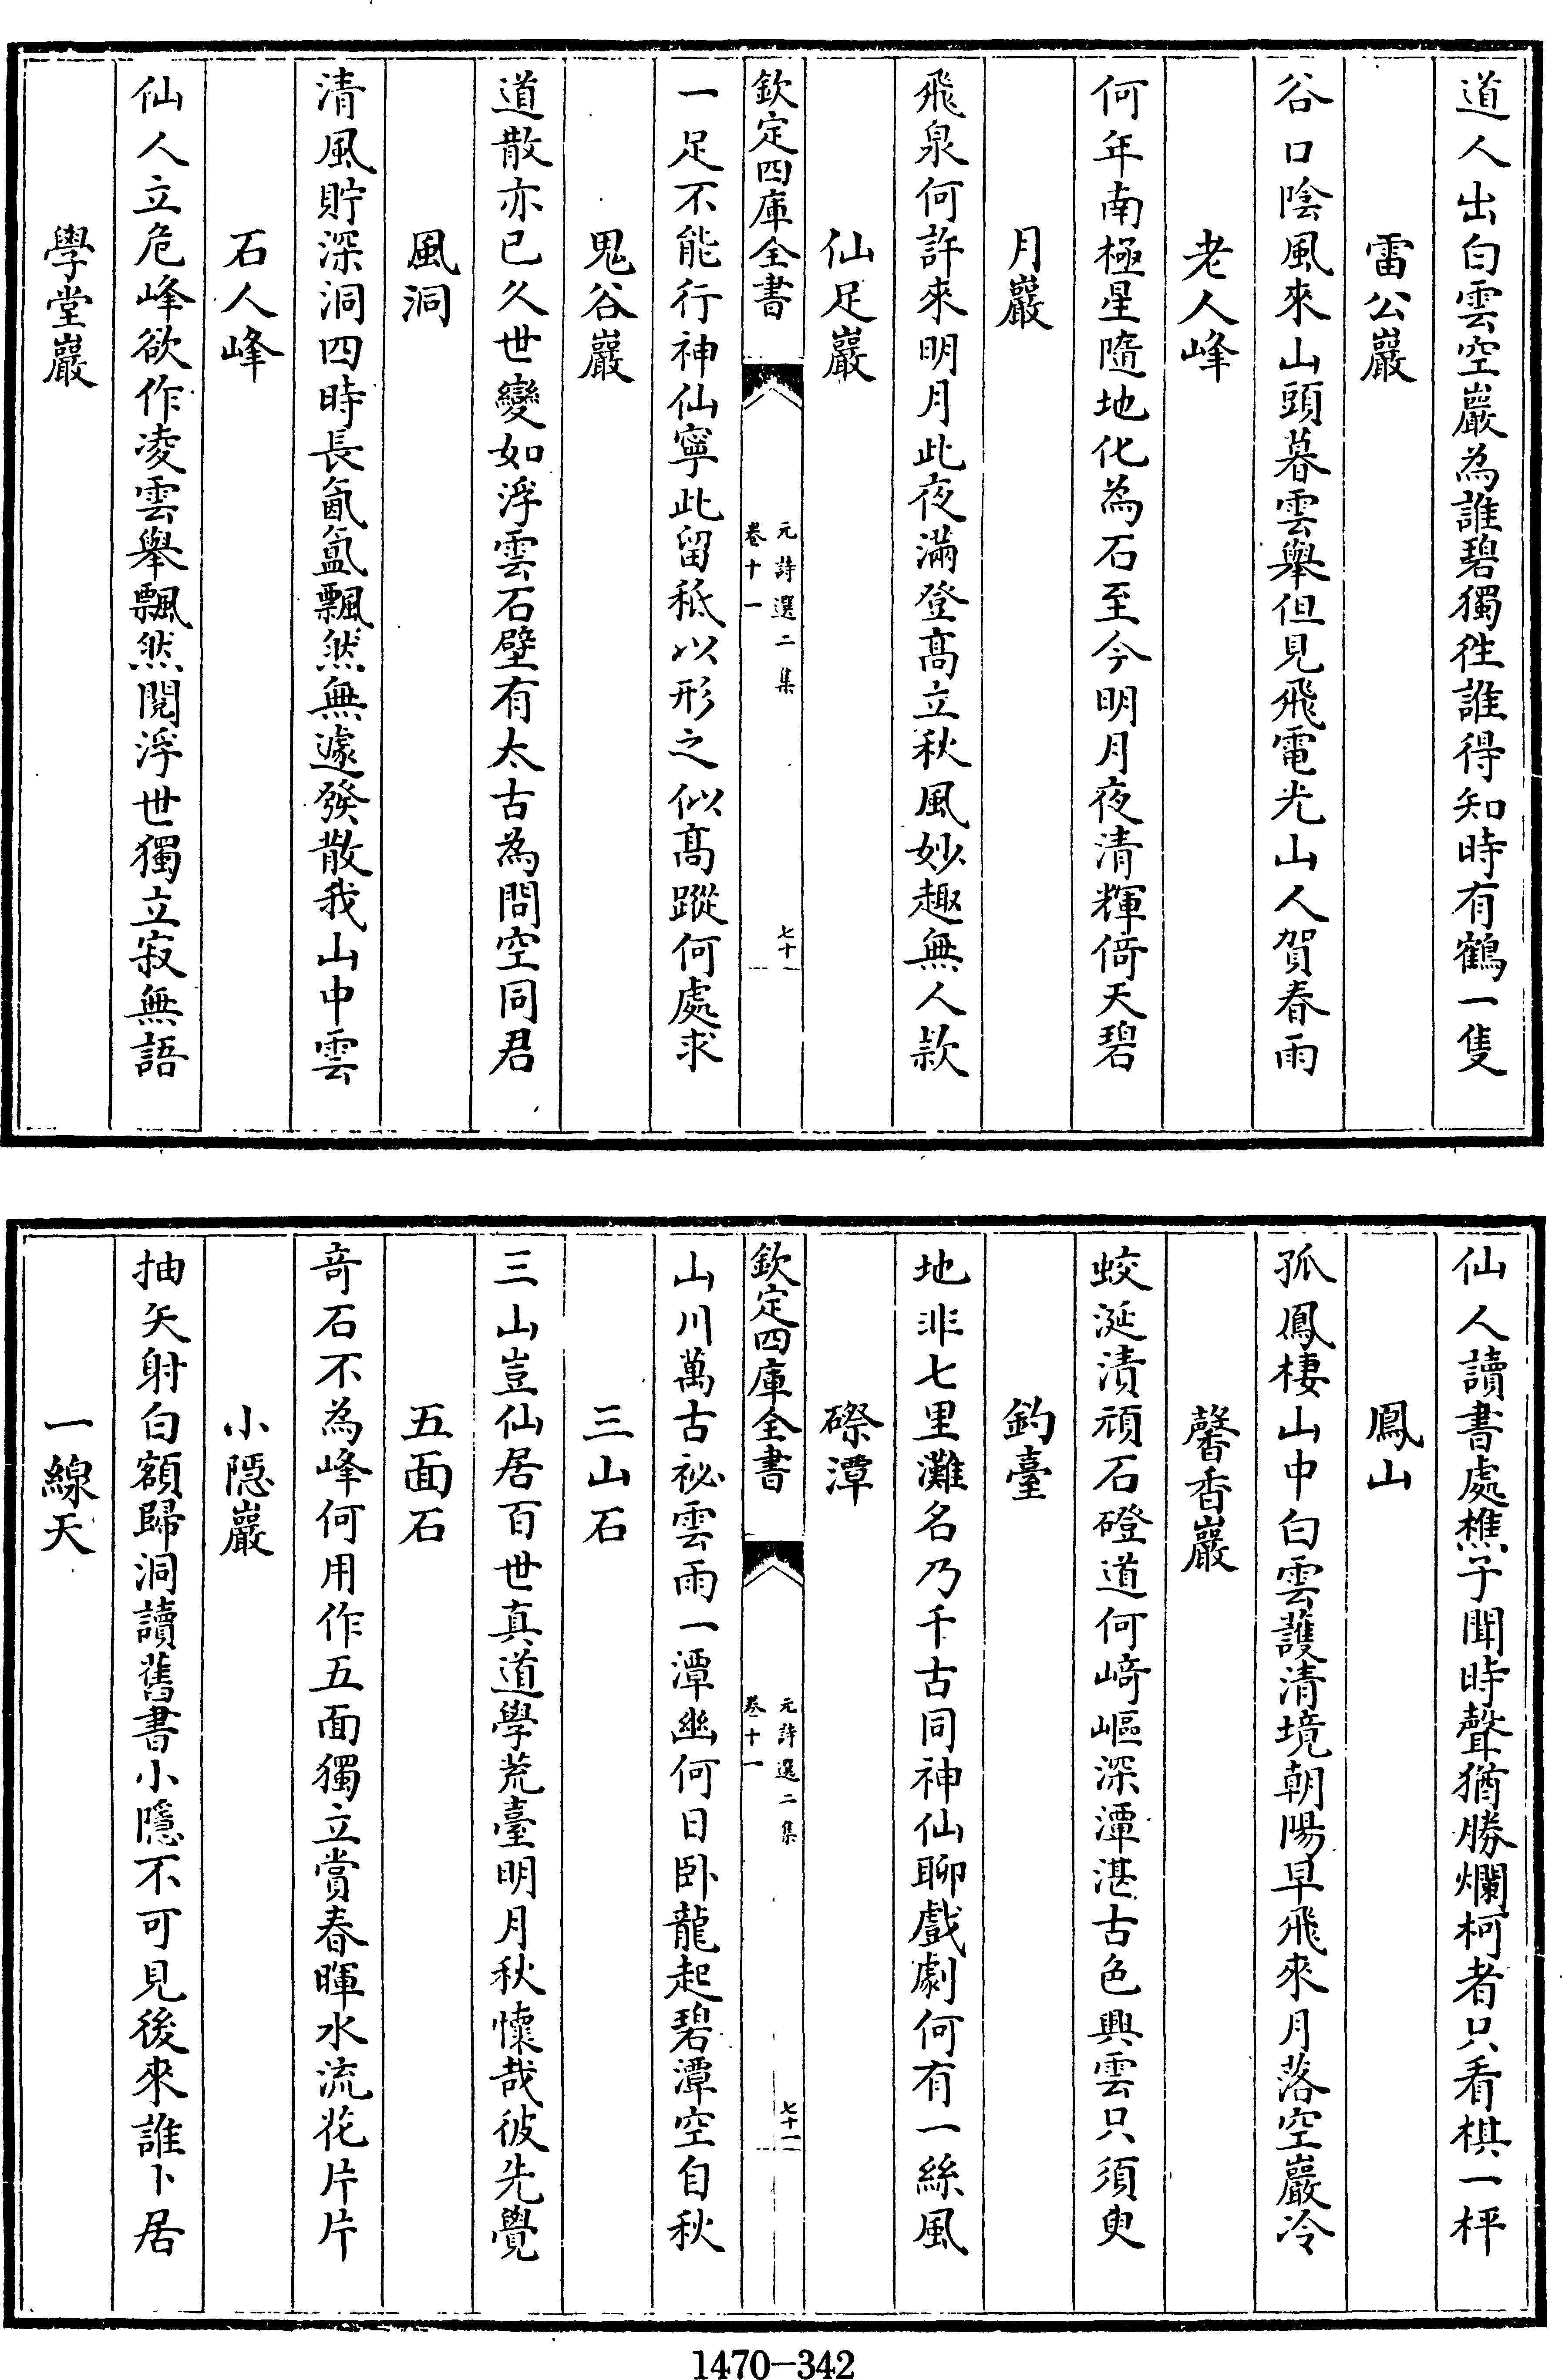 道人出白雲空巖為誰碧獨徃誰得知時有鶴一隻
雷公巖
谷口陰風來山頭暮雲舉但見飛電光山人賀春雨
老人峰
何年南極星隨地化為石至今明月夜清輝倚天碧
月巖
飛泉何許來明月此夜滿登髙立秋風妙趣無人款
仙足巖
欽定四庫全書
元詩選二集
卷十一
七十
一足不能行神仙寧此留秪以形之似髙蹤何處求
鬼谷巖
道散亦已久世變如浮雲石壁有太古為問空同君
風洞
清風貯深洞四時長氤氲飄然無遽發散我山中雲
石人峰
仙人立危峰欲作凌雲舉飄然閱浮世獨立寂無語
學堂巖
仙人讀書處樵子聞時聲猶勝爛柯者只看棋一枰
鳳山
孤鳳棲山中白雲護清境朝陽早飛來月落空巖冷
馨香巖
蛟涎漬頑石磴道何﨑嶇深潭湛古色興雲只須臾
釣臺
地非七里灘名乃千古同神仙聊戲劇何有一絲風
磜潭
欽定四庫全書
元詩選二集
卷十一
七十一
山川萬古祕雲雨一潭幽何日卧龍起碧潭空自秋
三山石
三山豈仙居百世真道學荒臺明月秋懐哉彼先覺
五面石
竒石不為峰何用作五面獨立賞春暉水流花片片
小隱巖
抽矢射白額歸洞讀舊書小隱不可見後來誰卜居
一線天
1470—342